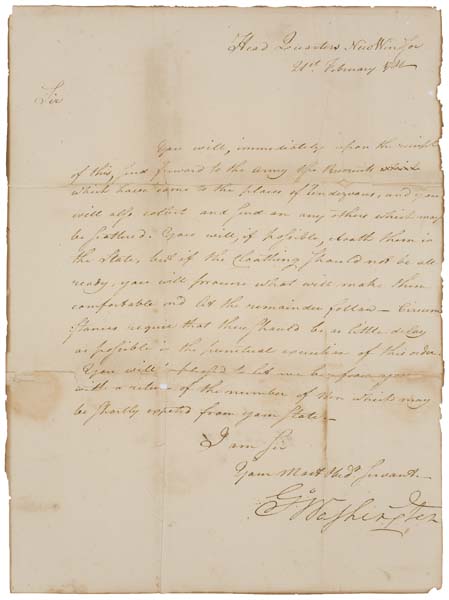 Head Quarters New Windsor
21st. February 1781
Sir
You will, immediately upon the receipt
of this, send forward to the Army the Recruits
which have come to the places of rendezvous, and you
will also collect and send on any others which may
be scattered. You will, if possible, cloath them in
the State, but if the Cloathing should not be all
ready, you will procure what will make them
comfortable and let the remainder follow — Circum
stances require that there should be as little delay
as possible in the punctual execution of this order.
You will pleased to let me hear from you
with a return of the number of Men which may
be shortly expected from your State —
I am Sir
Your Most Obdt. Servant
Go Washington